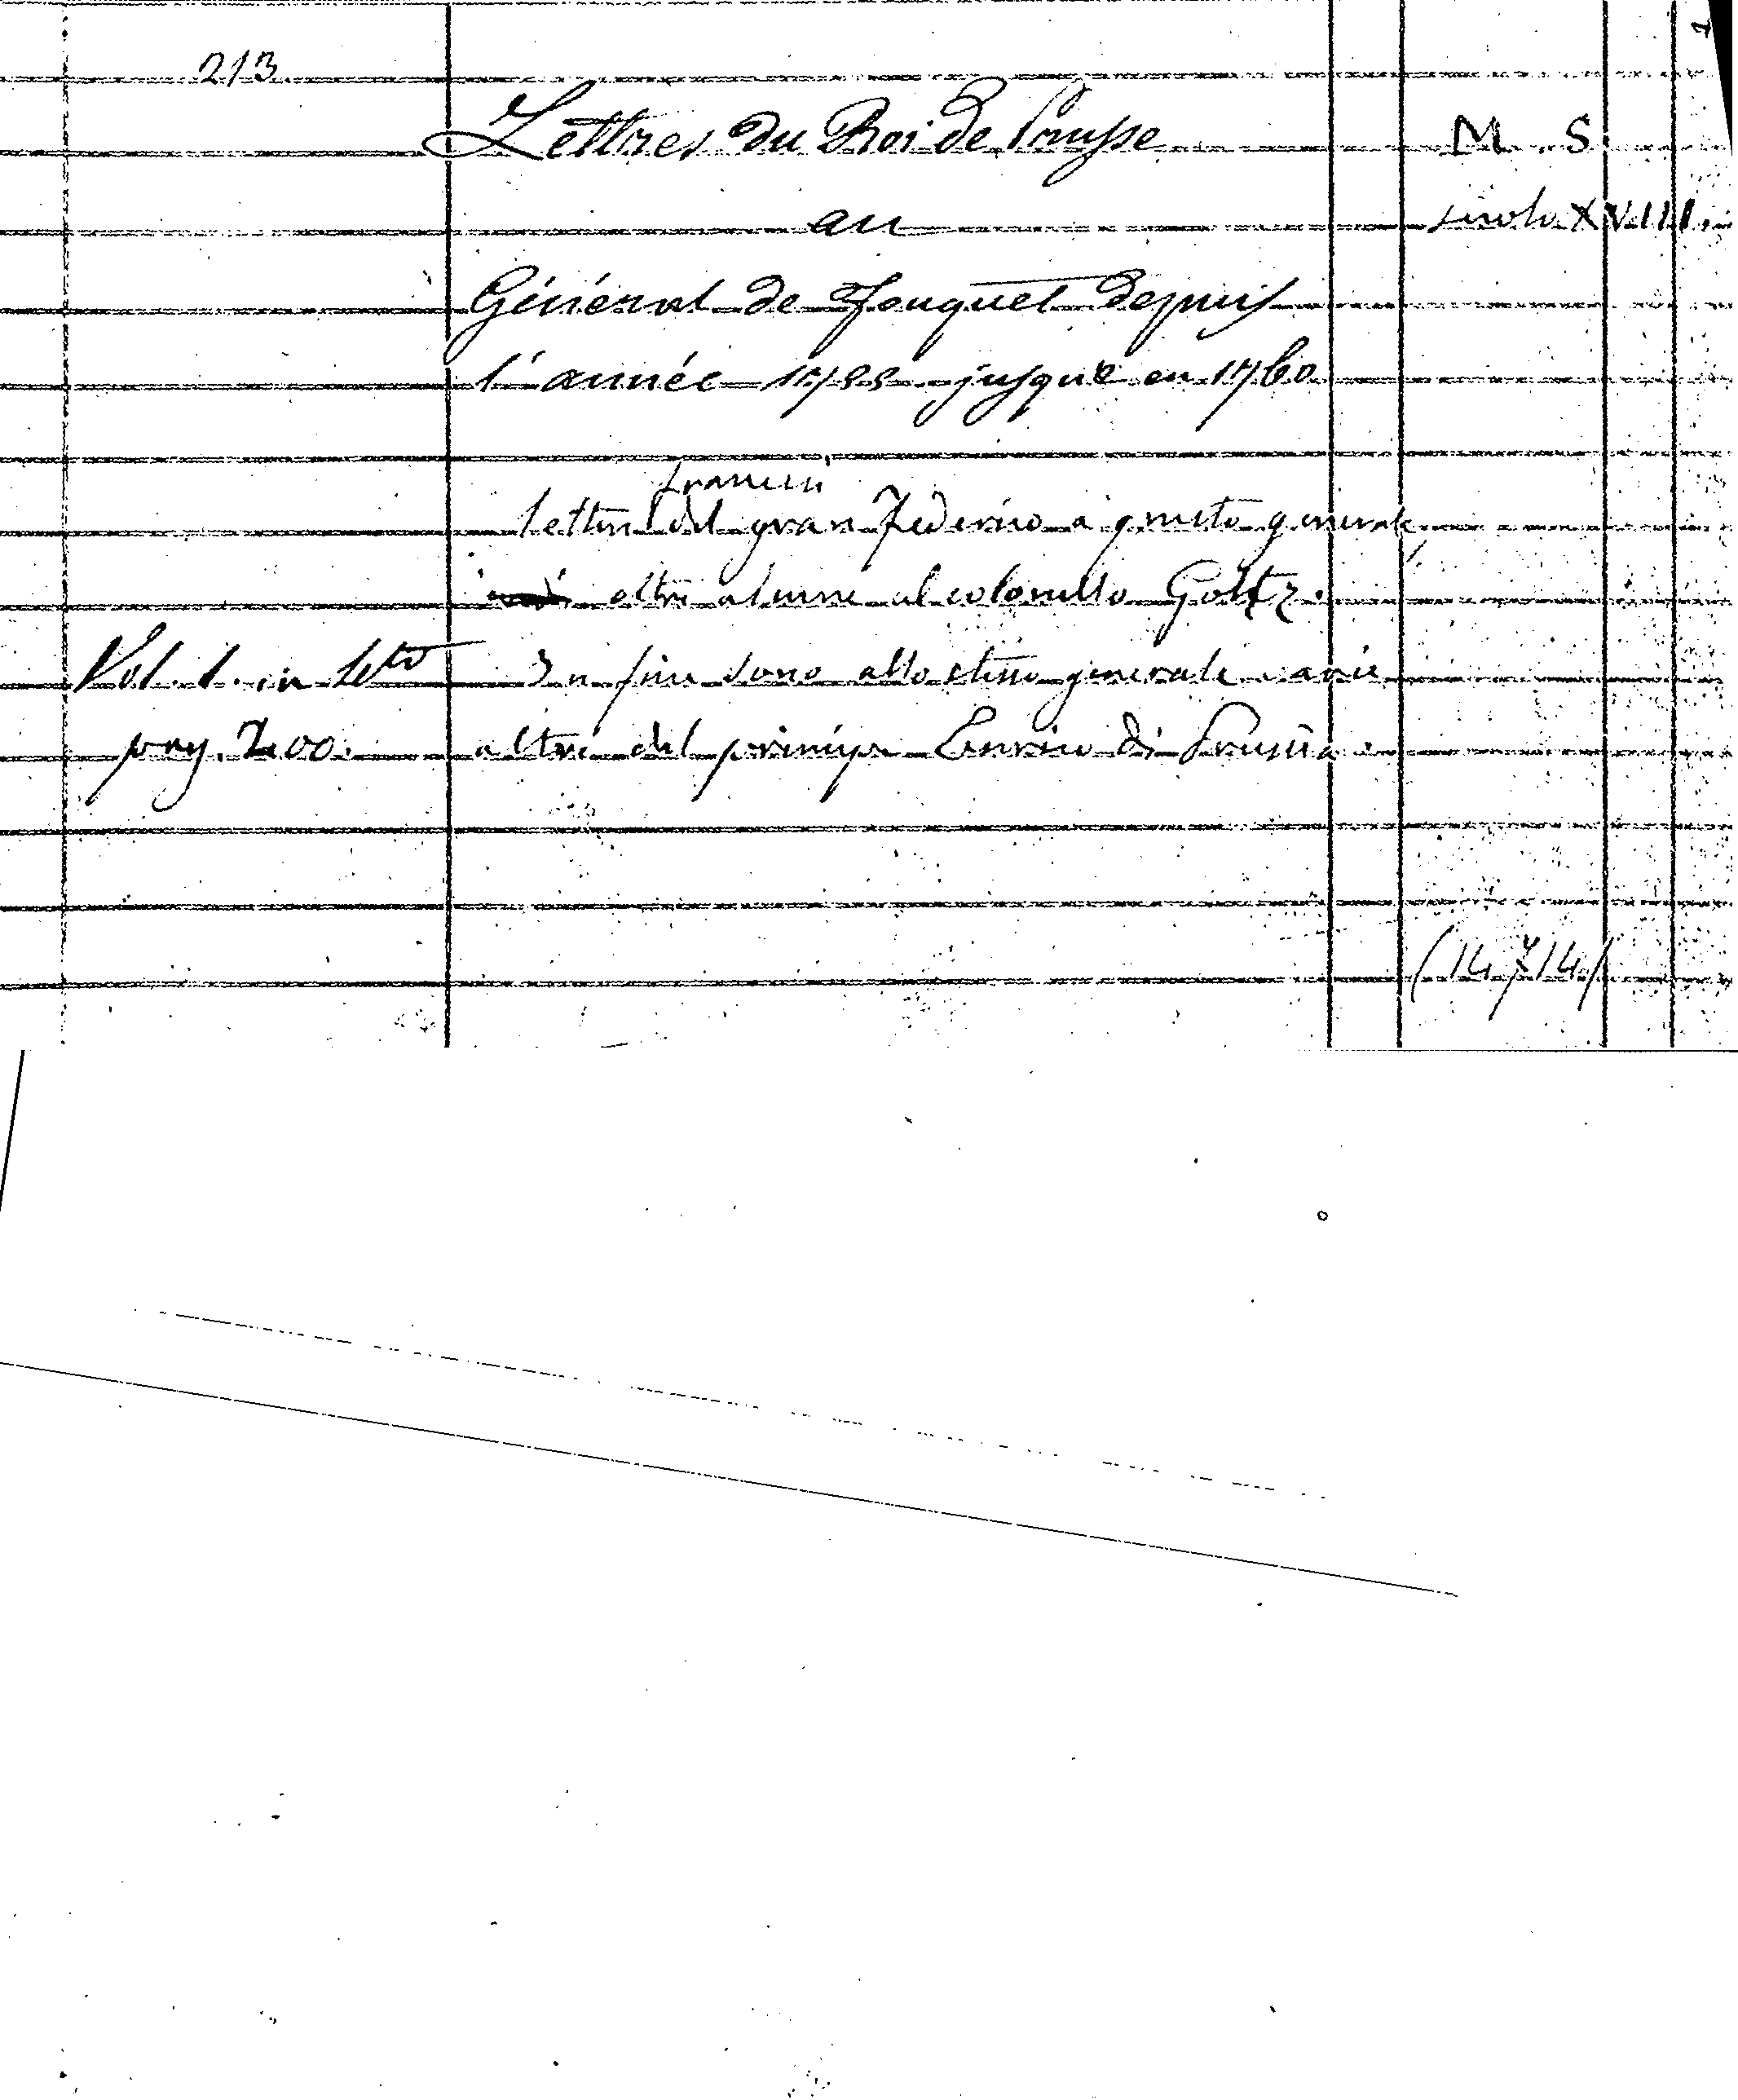 213.
Lettres du Roi de Prusse
M.S.
secolo XVIII.
au
Général de Fouquet depuis
l'année 1758 jusque en 1760
francesi
Lettere del gran Federico a questo generale
altre alcune al colonello Goltz.
Vol. 1. in 4to
In fine sono allo stesso generale varie
pag. 200.
altre del principe Enrico di Prussia.
(14714)